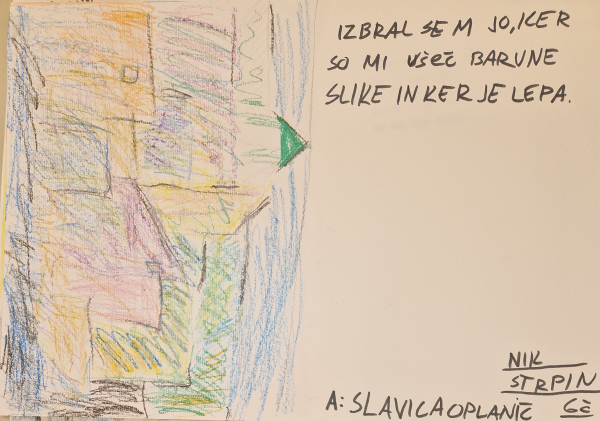 IZBRAL SEM JO, KER
SO MI VŠEČ BARVNE
SLIKE IN KER JE LEPA.
NIK
STRPIN
A: SLAVICA OPLANIČ 6č